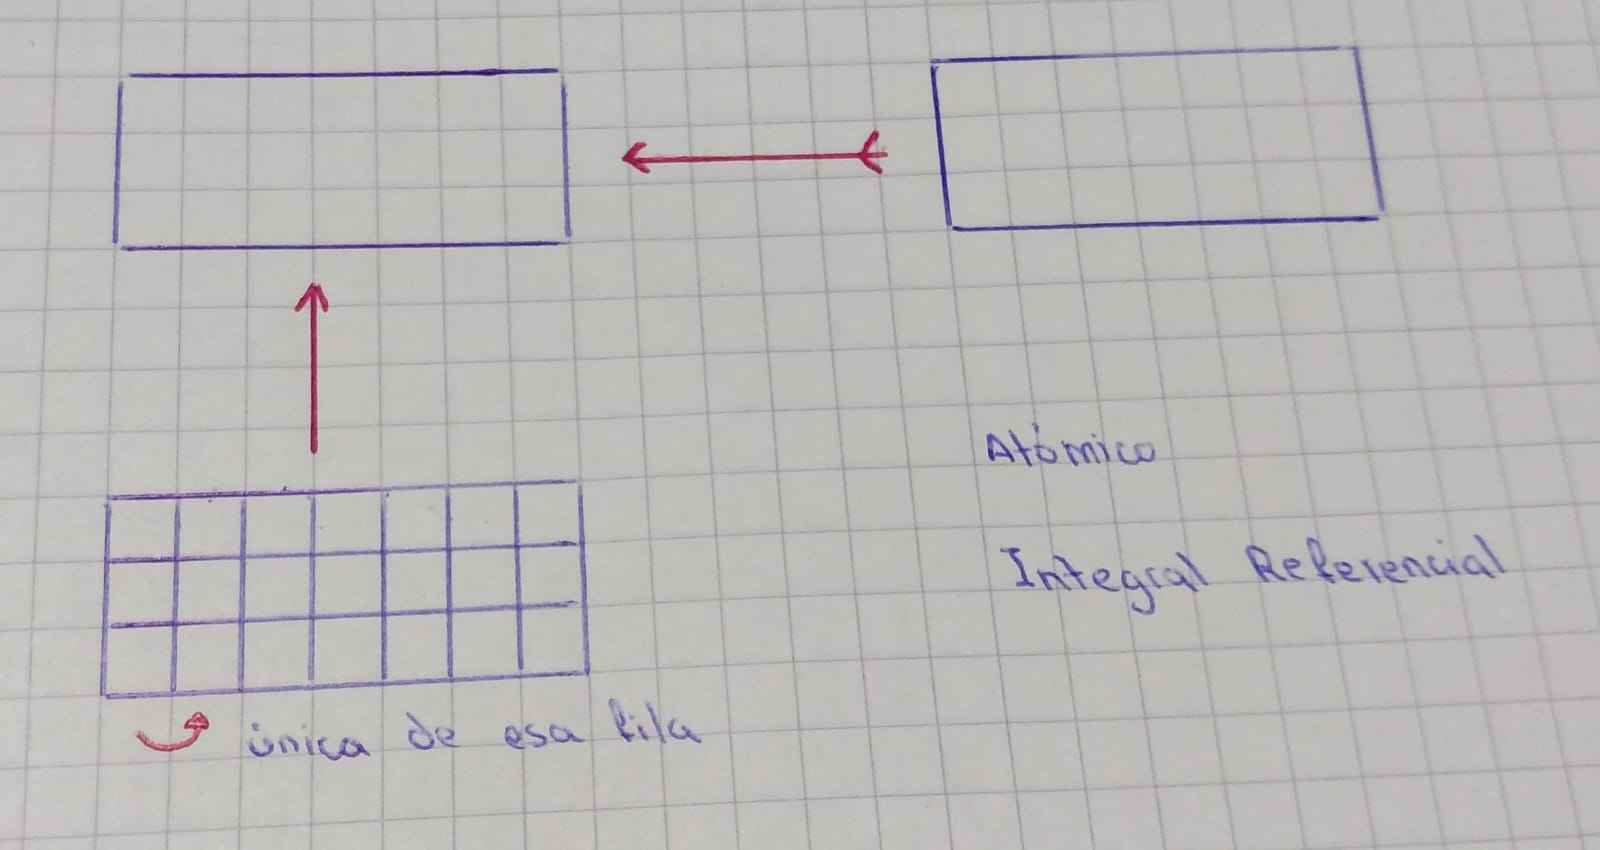 Atómico
Integral Referencial
única de esa fila